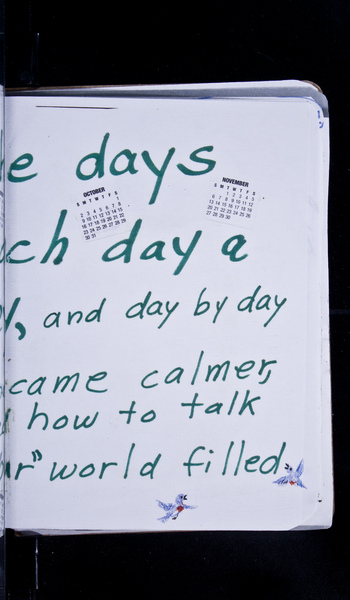 e days
OCTOBER
S M T W T F S
1
2 3 4 5 6 7 8
9 10 11 12 13 14 15
16 17 18 19 20 21 22
23 24 25 26 27 28 29
30 31
NOVEMBER
S M T W T F S
1 2 3 4 5
6 7 8 9 10 11 12
13 14 15 16 17 18 19
20 21 22 23 24 25 26
27 28 29 30
ch day a
y, and day by day
came calmer,
how to talk
r" world filled